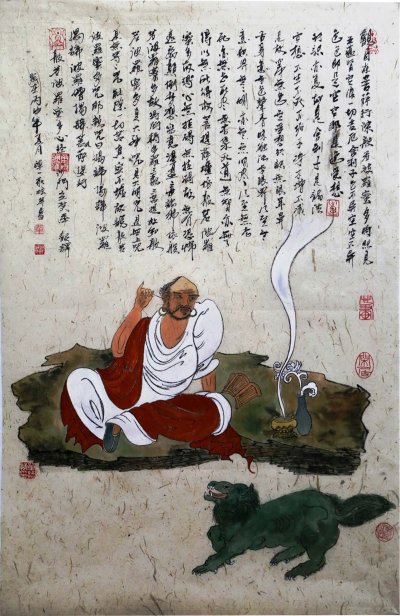 觀自在菩薩行深般若波羅蜜多時照見
五蘊皆空度一切苦厄舍利子色不異空空不異
色色即是空空即是色受想
行識亦復如是舍利子是諸法
空相不生不滅不垢不淨不增不減
是故空中無色無受想行識無眼耳
鼻舌身意無色聲香味觸法無眼界乃至無
意識界無無明亦無無明盡乃至無老
死亦無老死盡無苦集滅道無智亦無
得以無所得故菩提薩埵依般若波羅
蜜多故心無罣礙無罣礙故無有恐怖
遠離顛倒夢想究竟涅槃三世諸佛依般
若波羅蜜多故得阿耨多羅三藐三菩提故知般
若波羅蜜多是大神咒是大明咒是無上咒
是無等等咒能除一切苦真實不虛故說般若
波羅蜜多咒即說咒曰揭諦揭諦波羅
揭諦波羅僧揭諦菩提薩婆訶
般若波羅蜜多心經
丙申年五月